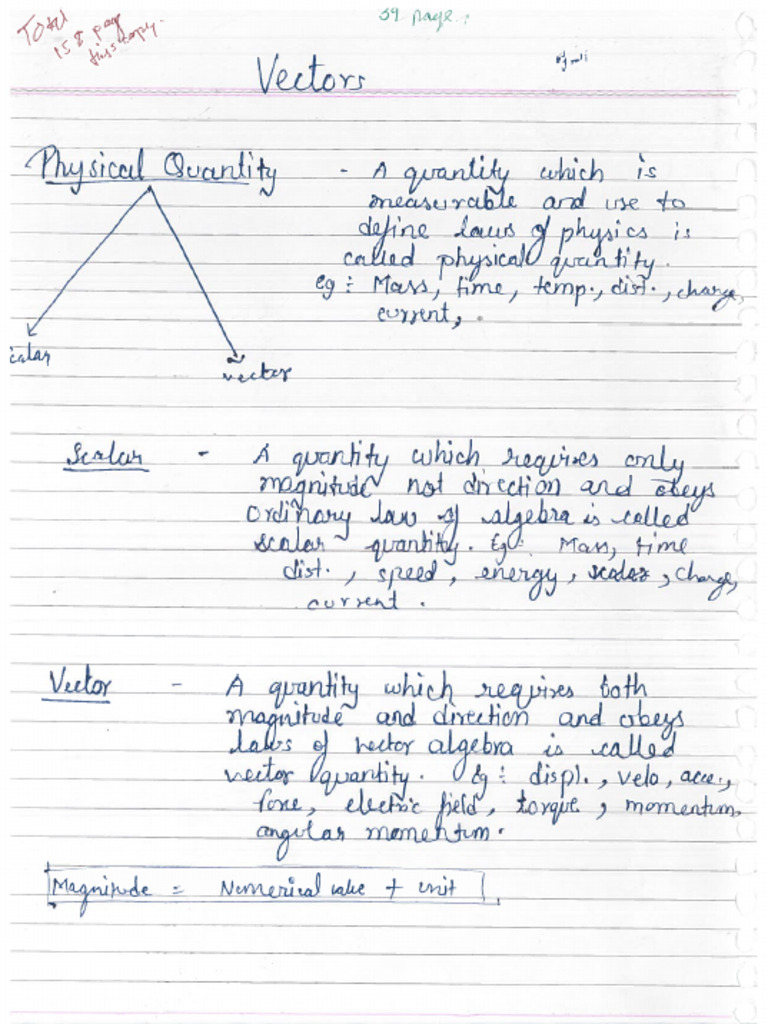 59 page.
Total
158 page
this copy.
Vectors
Physical Quantity - A quantity which is
measurable and use to
define laws of physics is
called physical quantity.
eg : Mass, time, temp., dist., charge,
current,
calar
vector
Scalar - A quantity which requires only
magnitude not direction and obeys
ordinary law of algebra is called
scalar quantity. Eg : Mass, time
dist., speed, energy, scalar, charge,
current.
Vector - A quantity which requires both
magnitude and direction and obeys
laws of vector algebra is called
vector quantity. Eg : displ., velo, acce.,
force, electric field, torque, momentum,
angular momentum.
Magnitude = Numerical value + unit